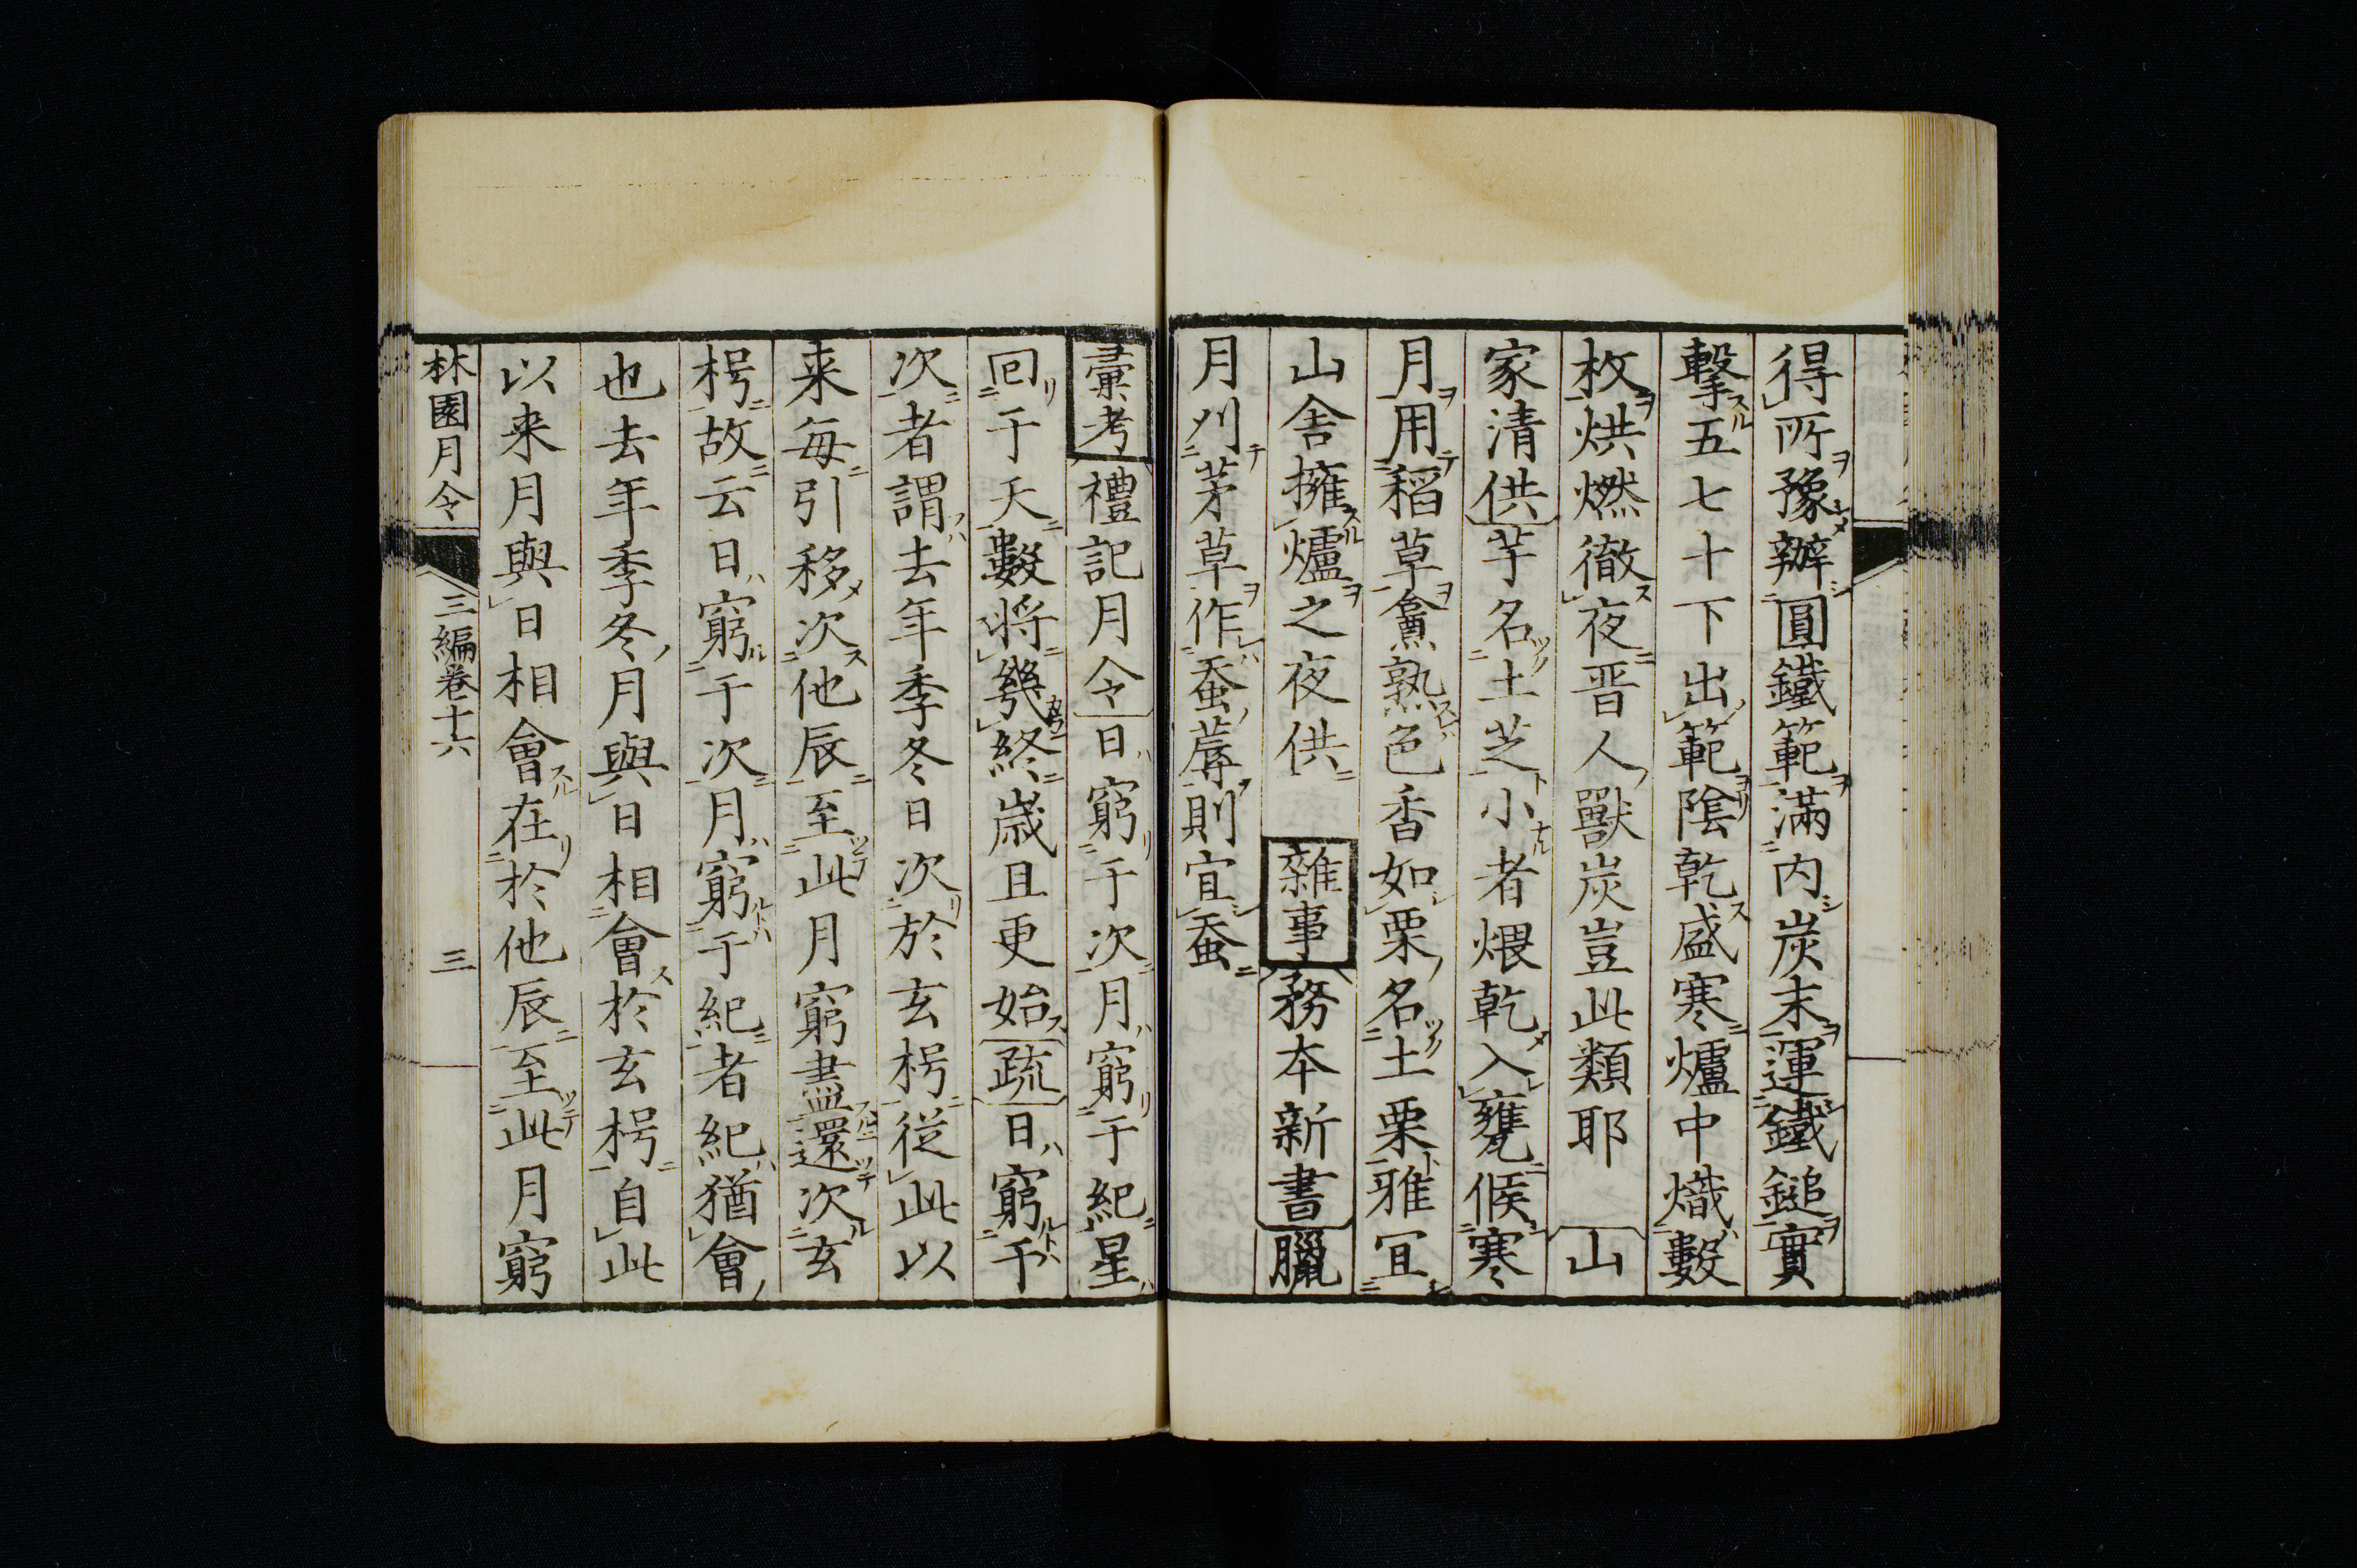 得所豫辦圓鐵範滿内炭末運鐵鎚實
擊五七十下出範陰乾盛寒爐中熾數
枚烘燃徹夜晋人獸炭豈此類耶 山
家清供芋名土芝小者煨乾入甕候寒
月用稻草盦熟色香如栗名土栗雅冝
山舍擁爐之夜供 雜事 務本新書 臘
月刈茅草作蚕蓐則宜蚕
彙考 禮記月令 日窮于次月窮于紀星
回于天數將幾終歳且更始 疏 日窮于
次者謂去年季冬日次於玄枵從此以
来每引移次他辰至此月窮盡還次玄
枵故云日窮于次月窮于紀者紀猶會
也去年季冬月與日相會於玄枵自此
以来月與日相會在於他辰至此月窮
林園月令 三編卷十六 三